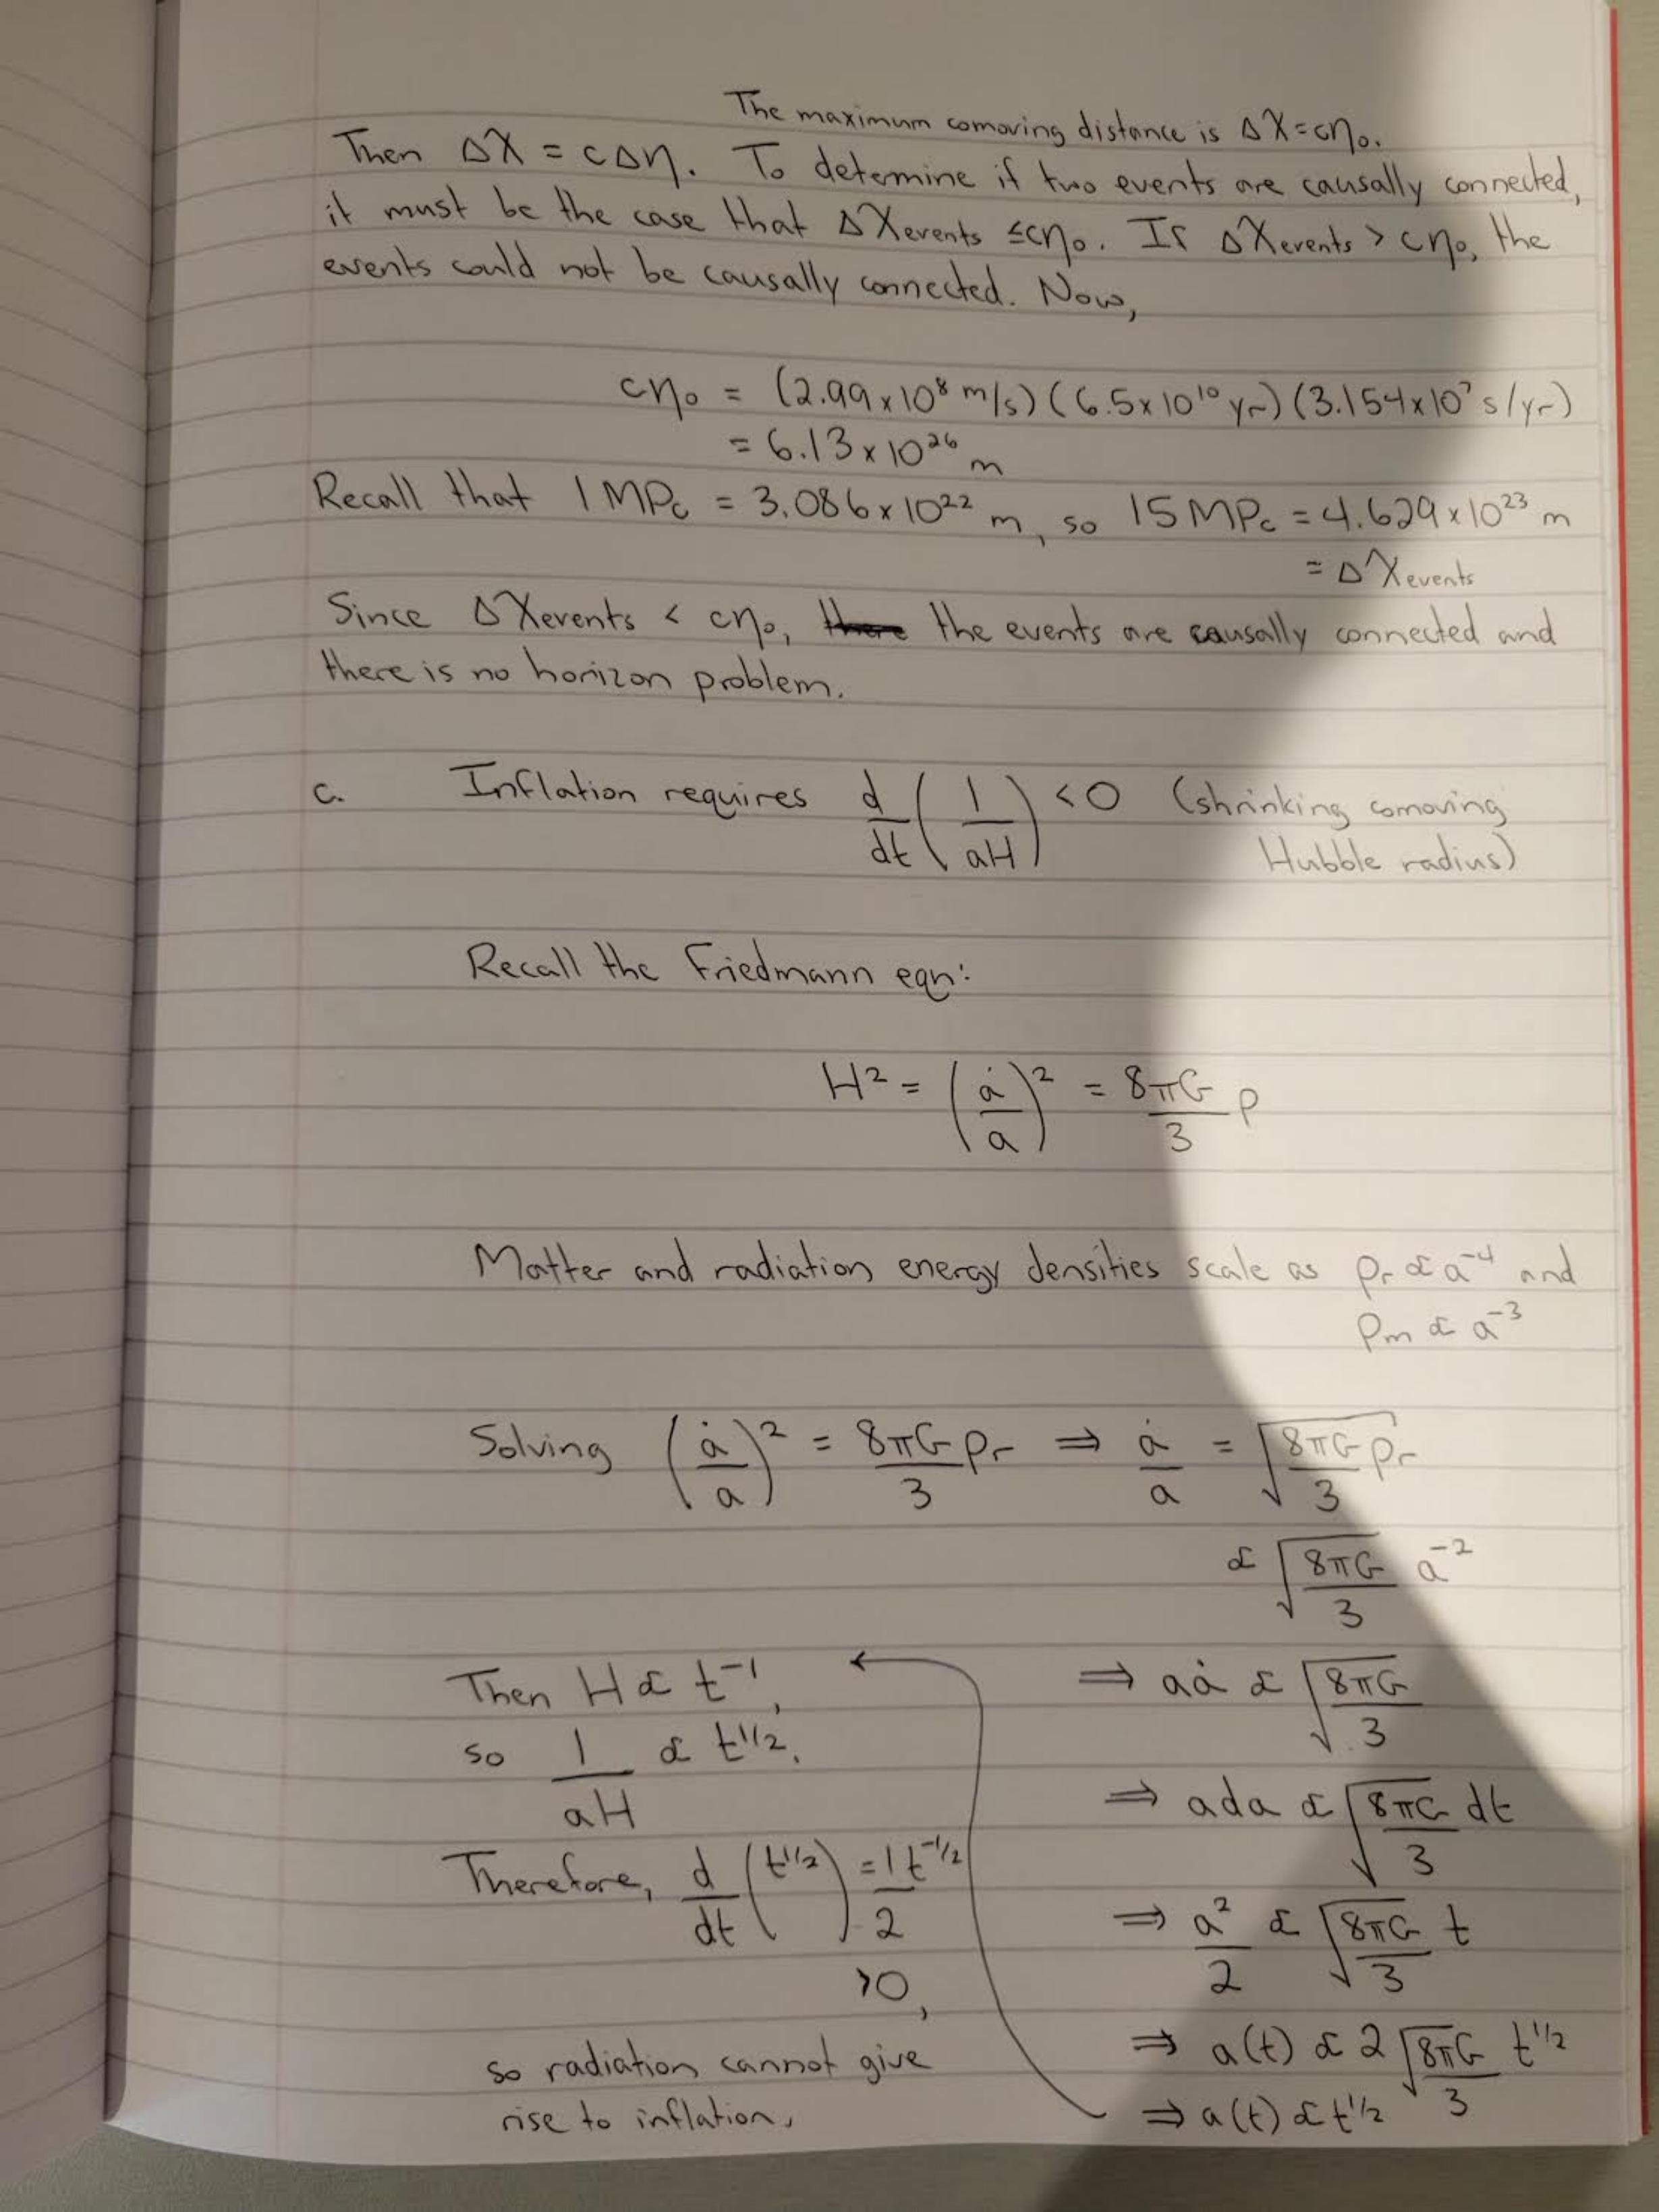 The maximum comoving distance is ΔX=cη₀.
Then ΔX = cΔη. To determine if two events are causally connected,
it must be the case that ΔXevents ≤cη₀. If ΔXevents > cη₀, the
events could not be causally connected. Now,
cη₀ = (2.99×10⁸ m/s)(6.5×10¹⁰ yr)(3.154×10⁷ s/yr)
= 6.13×10²⁶ m
Recall that 1 MPc = 3.086×10²² m, so 15 MPc = 4.629×10²³ m
= ΔXevents
Since ΔXevents < cη₀, there the events are causally connected and
there is no horizon problem.
c. Inflation requires d/dt (1/aH) <0 (shrinking comoving
Hubble radius)
Recall the Friedmann eqn:
H² = (ȧ/a)² = 8πG/3 ρ
Matter and radiation energy densities scale as ρr ∝ a⁻⁴ and
ρm ∝ a⁻³
Solving (ȧ/a)² = 8πG/3 ρr ⇒ ȧ/a = √(8πG/3 ρr)
∝ √(8πG/3) a⁻²
Then H ∝ t⁻¹, ⇒ aȧ ∝ √(8πG/3)
so 1/aH ∝ t^1/2. ⇒ ada ∝ √(8πG/3) dt
Therefore, d/dt (t^1/2) = 1/2 t^-1/2 ⇒ a²/2 ∝ √(8πG/3) t
>0,
⇒ a(t) ∝ 2 √(8πG/3) t^1/2
so radiation cannot give
rise to inflation. ⇒ a(t) ∝ t^1/2